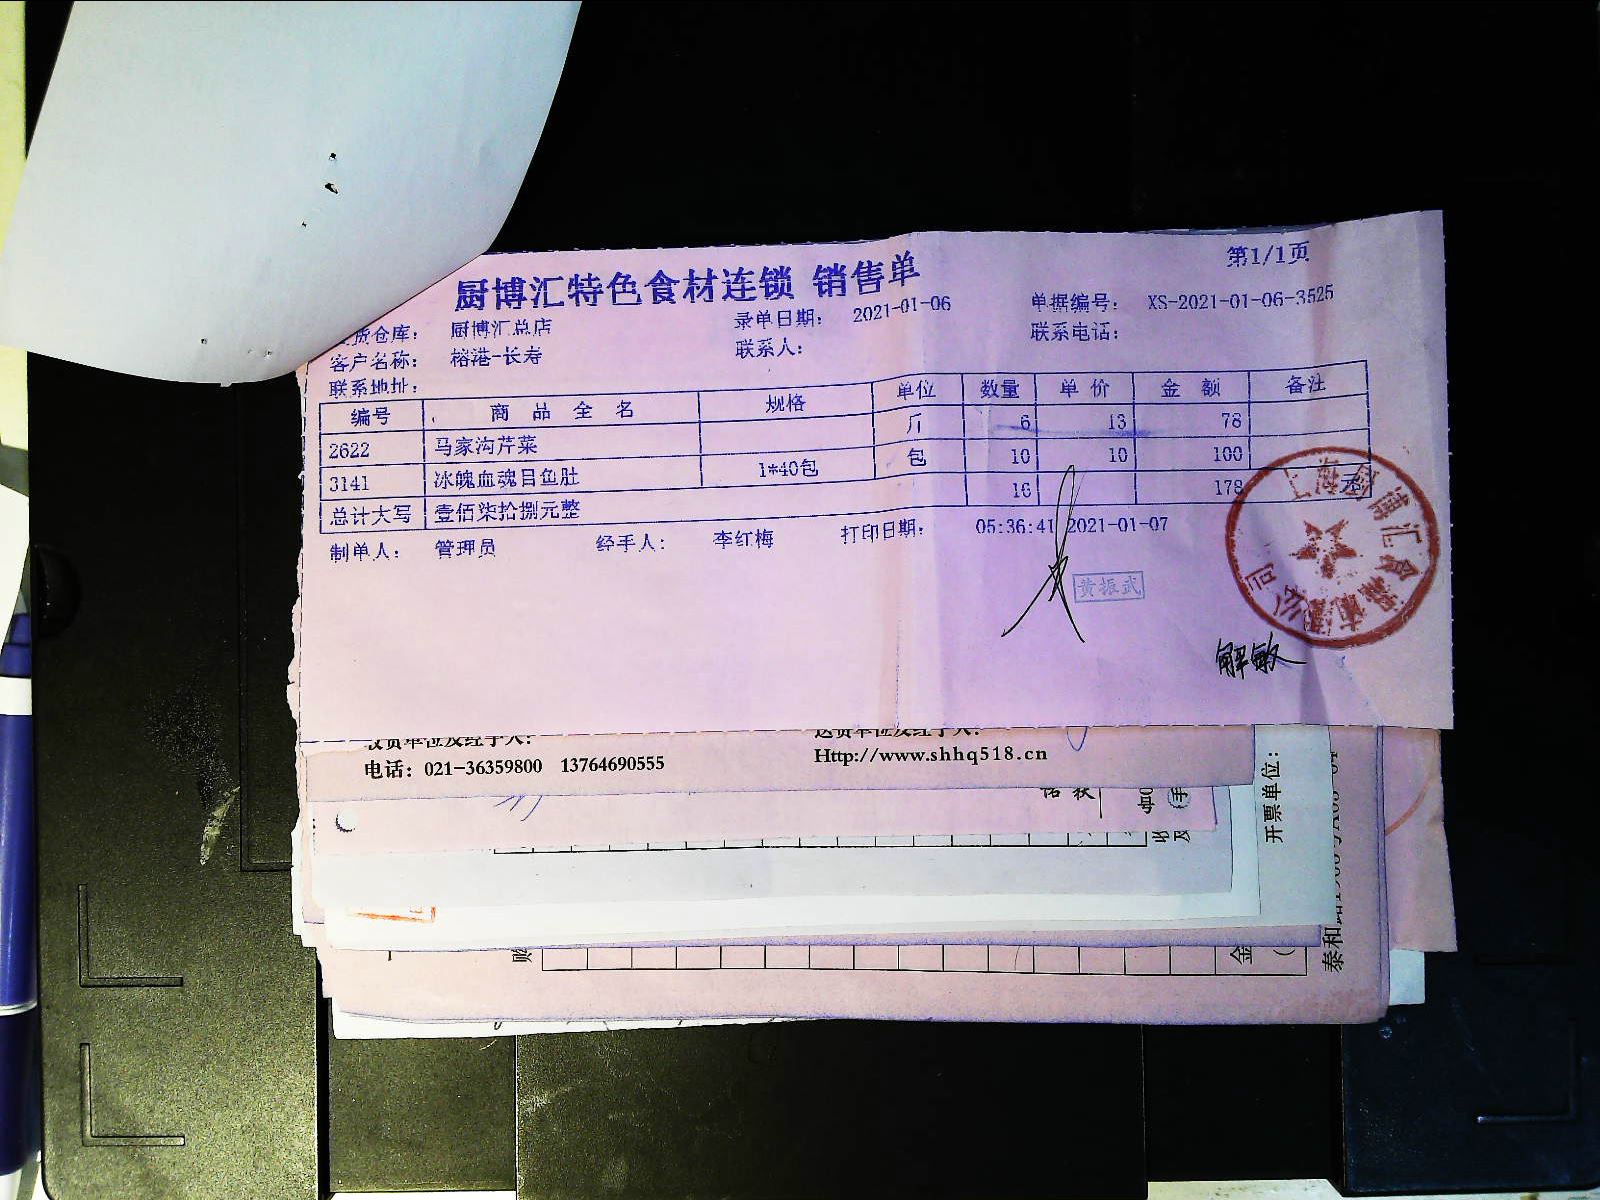 厨博汇特色食材连锁 销售单
第1/1页
货仓库： 厨博汇总店 录单日期： 2021-01-06 单据编号： XS-2021-01-06-3525
客户名称： 榕港-长寿 联系人： 联系电话：
联系地址：
编号 商品全名 规格 单位 数量 单价 金额 备注
2622 马家沟芹菜 斤 6 13 78
3141 冰魄血魂目鱼肚 1*40包 包 10 10 100
总计大写 壹佰柒拾捌元整 16 178 元
制单人： 管理员 经手人： 李红梅 打印日期： 05:36:41 2021-01-07
黄振武
解敏
收货单位及经手人： 送货单位及经手人：
电话：021-36359800 13764690555 Http://www.shhq518.cn
开票单位：
收
及
购
金
泰和路